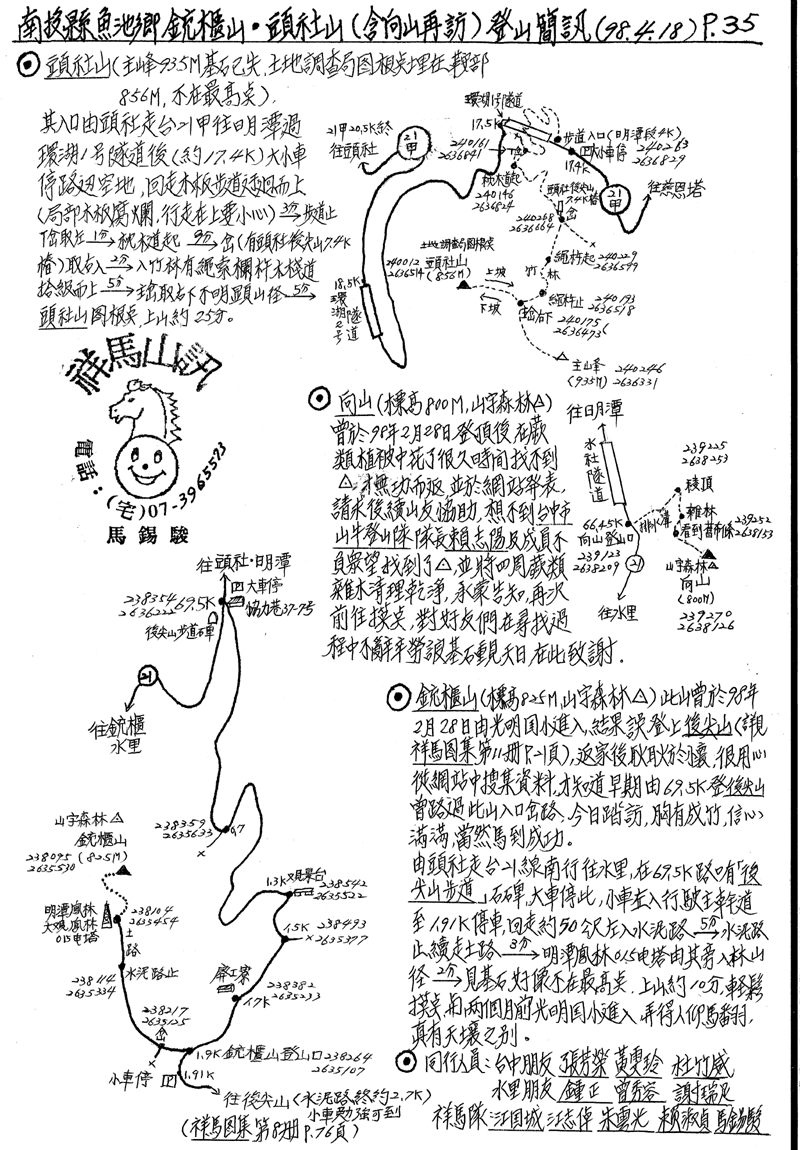 南投縣魚池鄉銃櫃山·頭社山(含向山再訪)登山簡訊(98.4.18) P.35
頭社山(主峰935M基石已失,土地調查局圖根點埋在鞍部
856M,不在最高點)。
其入口由頭社走台21甲往日月潭過
環湖1号隧道後(約17.4K)大小車
停路边空地,回走木板步道迂迴而上
(局部木板腐爛,行走在上要小心) 3分 步道止
T岔取左 1分 枕木道起 9分 岔(有頭社後尖山7.4K
樁)取右入 2分 入竹林有繩索欄杆木棧道
拾級而上 5分 主岔取右下不明顯山徑 5分
頭社山圖根點,上山約25分。
環湖1号隧道
17.5K
21甲20.5K終
往頭社
21甲
240161
2636841
步道入口(明潭段4K)
大小車停
240263
2636829
17.4K
21甲
往慈恩塔
枕木道起
240146
2636824
頭社後尖山
7.4K樁
240268
2636664
岔
繩杆起
240229
2636599
竹林
土地調查局圖根點
頭社山
(856M)
240012
2636514
上坡
下坡
繩杆止
240193
2636518
岔右下
240175
2636473
主山峰
(935M)
240246
2636331
18.5K
環湖2号隧道
祥馬山訊
電話:(宅)07-3965573
馬錫駿
向山(標高800M,山字森林△)
曾於98年2月28日登頂後,在蕨
類植被中花了很久時間找不到
△,才無功而返,並於網站發表,
請求後續山友協助,想不到台中市
山牛登山隊隊長賴志陽及成員不
負眾望找到了△,並將四周蕨類
雜木清理乾淨,承蒙告知,再次
前往摸點,對好友們在尋找過
程中不辭辛勞讓基石重見天日,在此致謝。
往明潭
水社隧道
66.45K
向山登山口
239123
2638209
21
往水里
239225
2638253
稜頂
雜林
239252
2638153
山字森林△
向山
(800M)
239270
2638126
往頭社·明潭
大車停
協力巷37-7号
238354
2636222
69.5K
後尖山步道石碑
21
往銃櫃
水里
238359
2635633
0.7
山字森林△
銃櫃山
(825M)
238095
2635530
明潭風林
大觀風林
015电塔
238104
2635454
土路
水泥路止
238114
2635334
238217
2635125
岔
1.3K
觀景台
238542
2635522
1.5K
238493
2635377
廢工寮
238382
2635233
1.7K
1.9K 銃櫃山登山口
238264
2635107
小車停
1.91K
往後尖山(水泥路終約2.7K)
小車勉強可到
(祥馬图集第8冊P.76頁)
銃櫃山(標高825M,山字森林△)此山曾於98年
2月28日由光明国小進入,結果誤登上後尖山(詳見
祥馬图集第11冊P.1頁),返家後耿耿於懷,很用心
從網站中搜集資料,才知道早期由69.5K登後尖山
曾路過此山入口岔路,今日踏訪,胸有成竹,信心
滿滿,當然馬到成功。
由頭社走台21線南行往水里,在69.5K路口有「後
尖山步道」石碑,大車停此,小車左入行駛主幹道
至1.91K停車,回走約50公尺左入水泥路 5分 水泥路
止,續走土路 3分 明潭風林015电塔由其旁入林山
徑 2分 見基石,好像不在最高點,上山約10分,輕鬆
摸點,和兩個月前光明国小進入,弄得人仰馬翻,
真有天壤之別。
同行人員:台中朋友 張芳榮 黃雯玲 杜竹威
水里朋友 鍾正 曾秀蓉 謝瑞足
祥馬隊 汪国城 江志偉 朱雲光 賴淑貞 馬錫駿